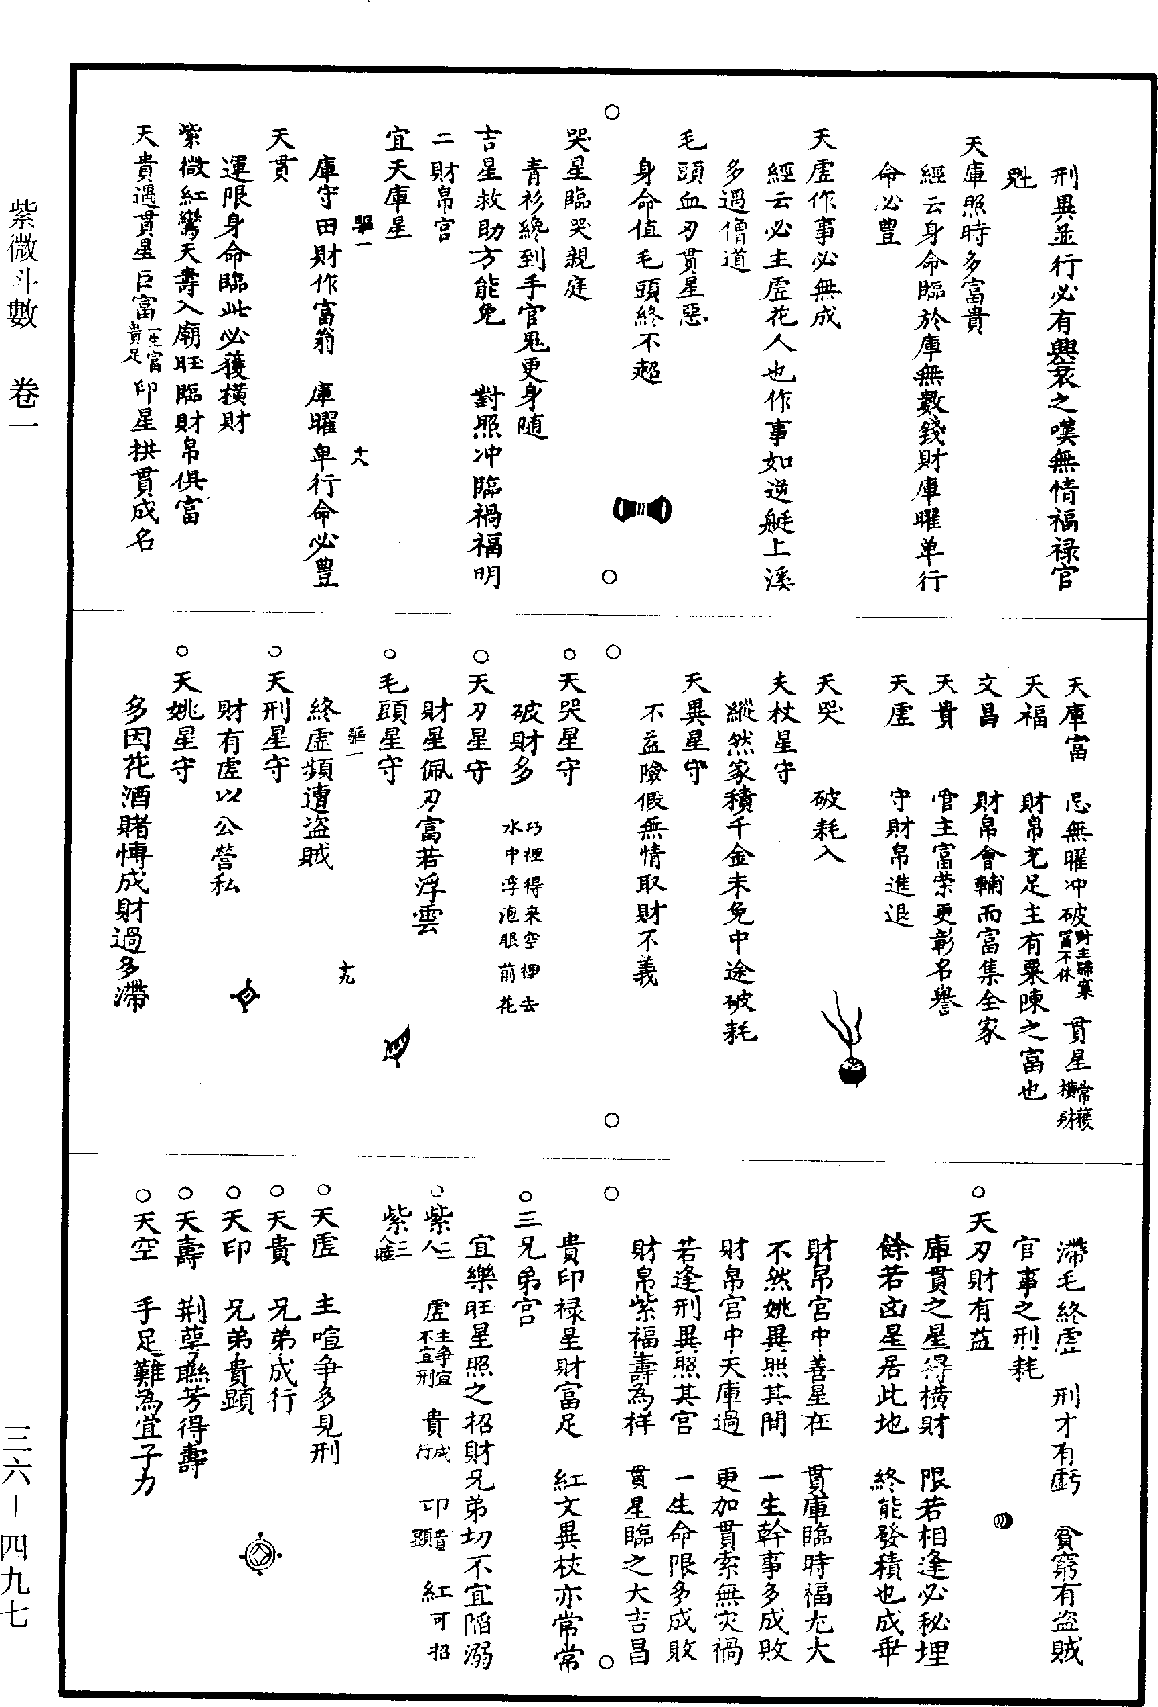 紫微斗數　卷一
三六－四九七
刑異並行必有興衰之嘆無情福祿官
魁
天庫照時多富貴
經云身命臨於庫無數錢財庫曜单行
命必豐
天虛作事必無成
經云必主虛花人也作事如逆艇上溪
多過僧道
毛頭血刃貫星惡
身命值毛頭終不超
哭星臨哭親庭
青衫纔到手官鬼更身随
吉星救助方能免　對照冲臨禍福明
二財帛宮
宜天庫星
驅一　十八
庫守田財作富翁　庫曜单行命必豐
天貫
運限身命臨此必獲横財
紫微紅鸞天壽入廟旺臨財帛俱富
天貴遇貫星巨富一生富貴足印星拱貫成名
天庫富　忌無曜冲破財主歸寨富不休　貫星常獲横財
天福　財帛充足主有粟陳之富也
文昌　財帛會輔而富集全家
天貴　官主富崇更彰名譽
天虛　守財帛進退
天哭　破耗入
天杖星守
縱然家積千金未免中途破耗
天異星守
不益險假無情取財不義
天哭星守
破財多　巧裡得来空裡去水中浮泡眼前花
天刃星守
財星佩刃富若浮雲
毛頭星守
驅一　十九
終虛頻遭盗賊
天刑星守
財有虛以公營私
天姚星守
多因花酒賭博成財過多滯
滯毛終虛　刑才有虧　貧窮有盗賊
官事之刑耗
天刃財有益
庫貫之星得横財　限若相逢必秘埋
餘若凶星居此地　終能發積也成垂
財帛宮中善星在　貫庫臨時福尤大
不然姚異照其間　一生幹事多成敗
財帛宮中天庫過　更加貫索無灾禍
若逢刑異照其宮　一生命限多成敗
財帛紫福壽為祥　貫星臨之大吉昌
貴印禄星財富足　紅文異杖亦常常
三兄弟宮
宜樂旺星照之招財兄弟切不宜陷溺
紫二三人　虛主争宣不宜刑　貴成行　印貴顯　紅可招
紫三人
天虛　主喧争多見刑
天貴　兄弟成行
天印　兄弟貴顕
天壽　荆華聯芳得壽
天空　手足難為宜子力